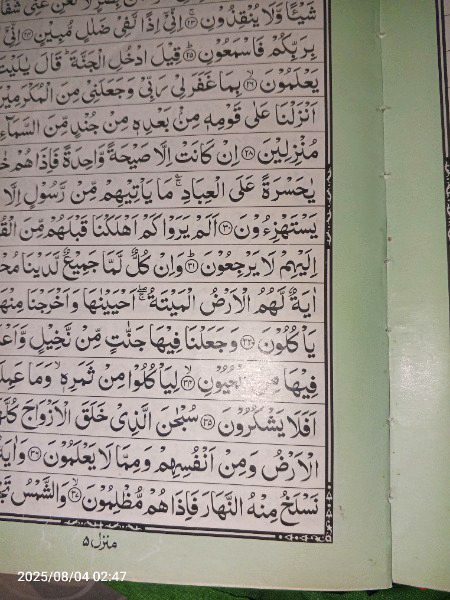 شَيْـًٔا وَّلَا يُنْقِذُوْنِ ﴿۲۳﴾ اِنِّيْٓ اِذًا لَّفِيْ ضَلٰلٍ مُّبِيْنٍ ﴿۲۴﴾ اِنِّيْٓ
بِرَبِّكُمْ فَاسْمَعُوْنِ ﴿۲۵﴾ قِيْلَ ادْخُلِ الْجَنَّةَ ؕ قَالَ يٰلَيْتَ
يَعْلَمُوْنَ ﴿۲۶﴾ بِمَا غَفَرَ لِيْ رَبِّيْ وَجَعَلَنِيْ مِنَ الْمُكْرَمِيْنَ
اَنْزَلْنَا عَلٰى قَوْمِهٖ مِنْۢ بَعْدِهٖ مِنْ جُنْدٍ مِّنَ السَّمَآءِ
مُنْزِلِيْنَ ﴿۲۸﴾ اِنْ كَانَتْ اِلَّا صَيْحَةً وَّاحِدَةً فَاِذَا هُمْ
يٰحَسْرَةً عَلَى الْعِبَادِ ۚ مَا يَاْتِيْهِمْ مِّنْ رَّسُوْلٍ اِلَّا
يَسْتَهْزِءُوْنَ ﴿۳۰﴾ اَلَمْ يَرَوْا كَمْ اَهْلَكْنَا قَبْلَهُمْ مِّنَ
اِلَيْهِمْ لَا يَرْجِعُوْنَ ﴿۳۱﴾ وَاِنْ كُلٌّ لَّمَّا جَمِيْعٌ لَّدَيْنَا
اٰيَةٌ لَّهُمُ الْاَرْضُ الْمَيْتَةُ ۚ اَحْيَيْنٰهَا وَاَخْرَجْنَا مِنْهَا
يَاْكُلُوْنَ ﴿۳۳﴾ وَجَعَلْنَا فِيْهَا جَنّٰتٍ مِّنْ نَّخِيْلٍ
فِيْهَا مِنَ الْعُيُوْنِ ﴿۳۴﴾ لِيَاْكُلُوْا مِنْ ثَمَرِهٖ ۙ وَمَا
اَفَلَا يَشْكُرُوْنَ ﴿۳۵﴾ سُبْحٰنَ الَّذِيْ خَلَقَ الْاَزْوَاجَ كُلَّهَا
الْاَرْضُ وَمِنْ اَنْفُسِهِمْ وَمِمَّا لَا يَعْلَمُوْنَ ﴿۳۶﴾ وَاٰيَةٌ
نَسْلَخُ مِنْهُ النَّهَارَ فَاِذَا هُمْ مُّظْلِمُوْنَ ﴿۳۷﴾ وَالشَّمْسُ
منزل ۵
2025/08/04 02:47